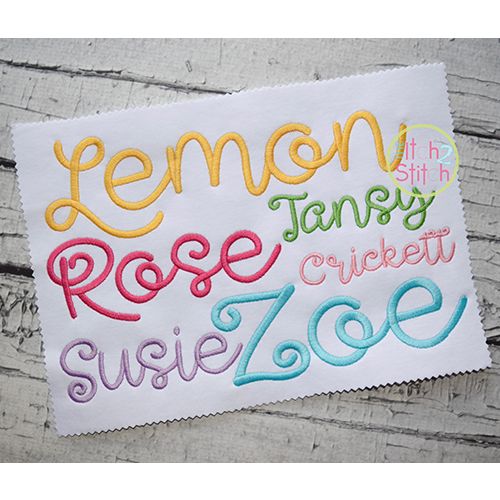 Lemon
Tansy
Rose
Crickett
Susie
Zoe
Itch 2
Stitch